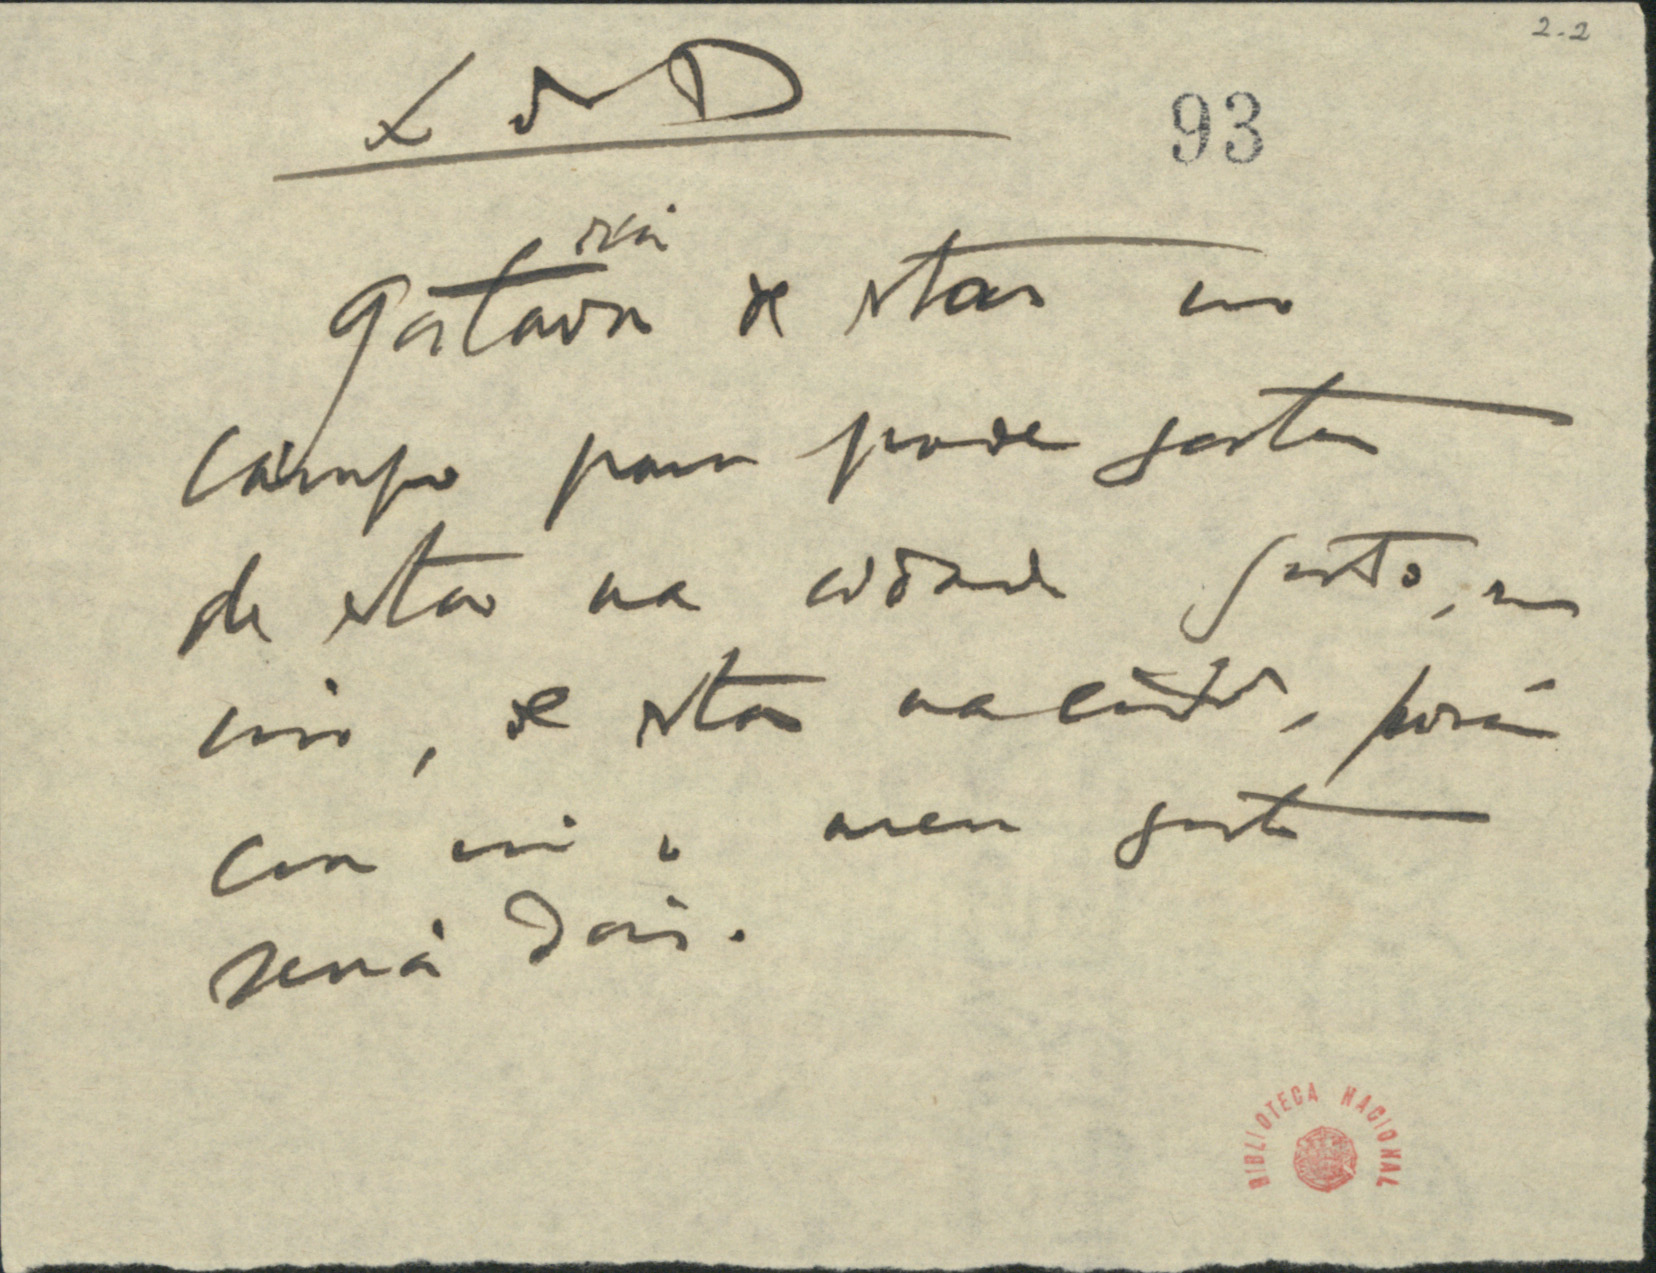 2-2
L do D
93
ria
Gostava de estar no
campo para poder gostar
de estar na cidade. Gosto, sem
isso, de estar na cidade, porém
com isso o meu gosto
seria dois.
BIBLIOTECA NACIONAL